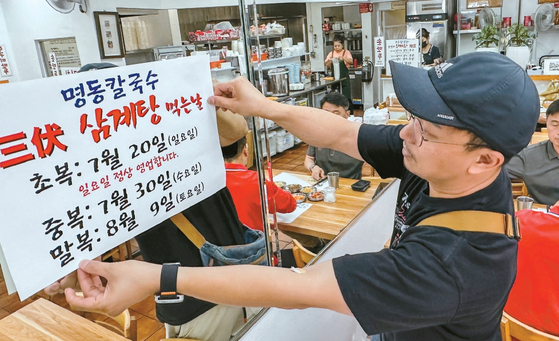 명동칼국수
三伏 삼계탕 먹는날
초복: 7월 20일 (일요일)
일요일 정상 영업합니다.
중복: 7월 30일 (수요일)
말복: 8월 9일 (토요일)